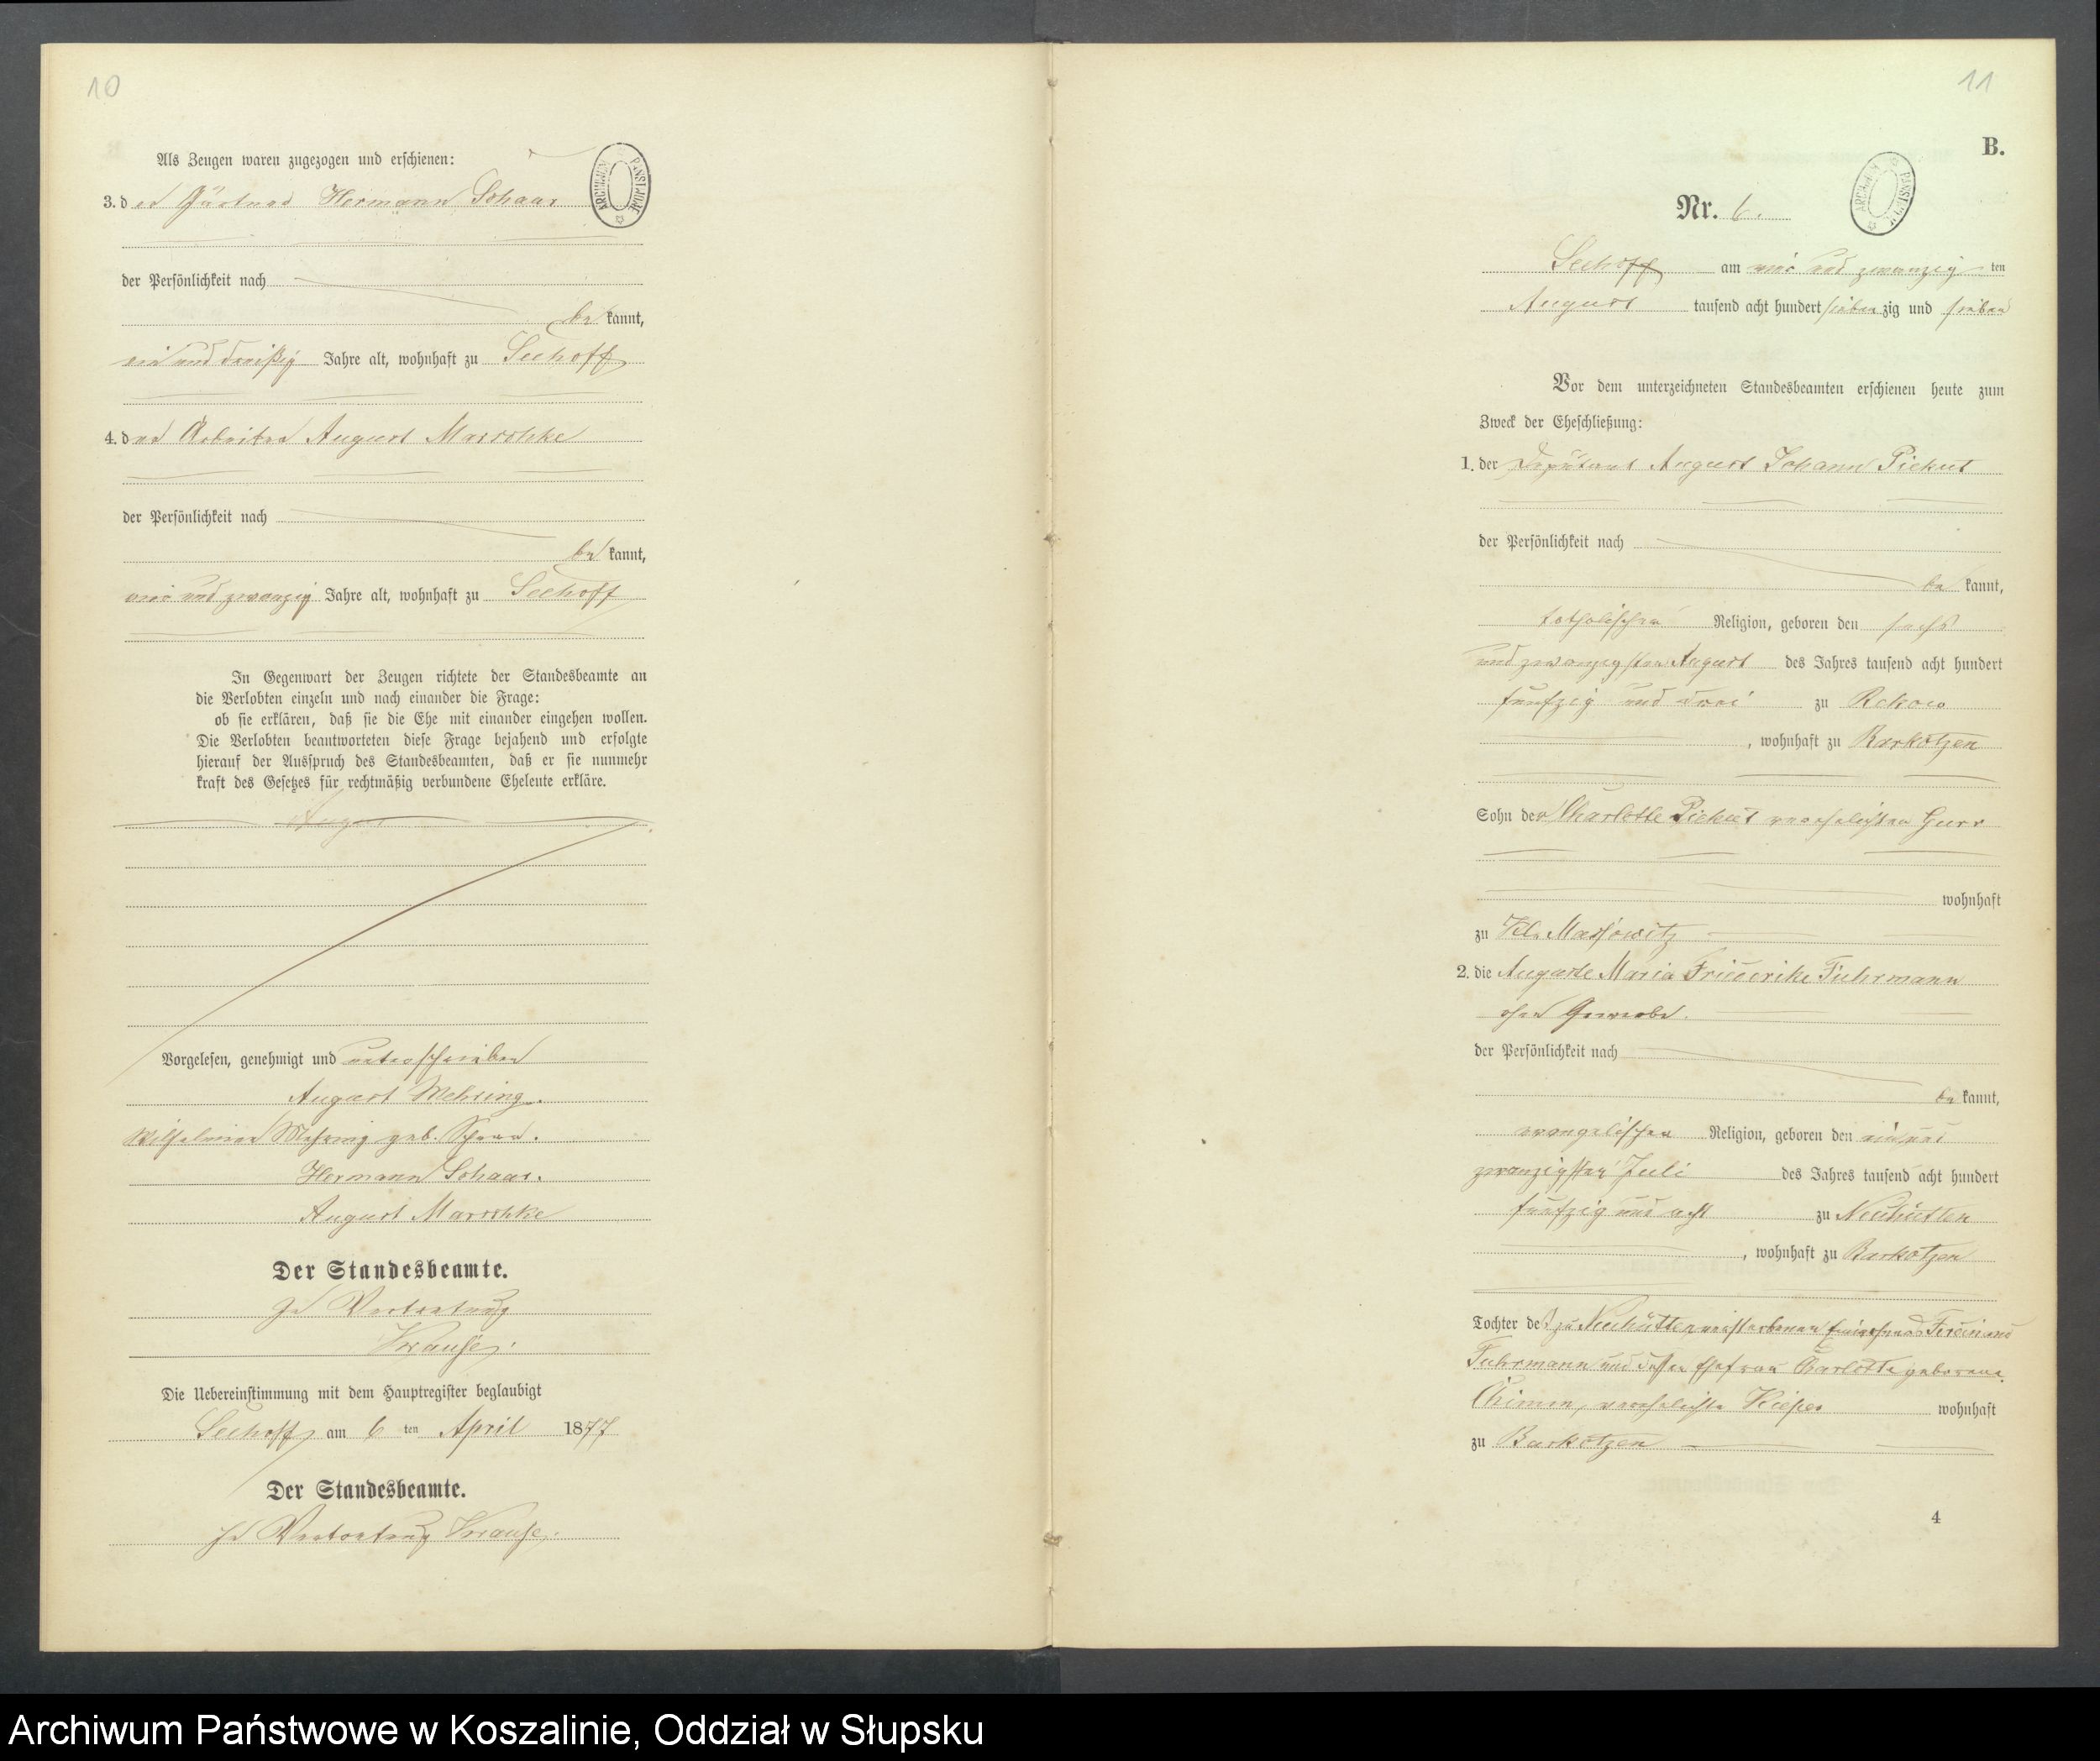 10
Als Zeugen waren zugezogen und erschienen:
ARCHIWUM PAŃSTWOWE
3. der Gärtner Hermann Schaar
der Persönlichkeit nach
bekannt,
ein und dreißig Jahre alt, wohnhaft zu Seehoff
4. der Arbeiter August Marschke
der Persönlichkeit nach
bekannt,
vier und zwanzig Jahre alt, wohnhaft zu Seehoff
In Gegenwart der Zeugen richtete der Standesbeamte an
die Verlobten einzeln und nach einander die Frage:
ob sie erklären, daß sie die Ehe mit einander eingehen wollen.
Die Verlobten beantworteten diese Frage bejahend und erfolgte
hierauf der Ausspruch des Standesbeamten, daß er sie nunmehr
kraft des Gesetzes für rechtmäßig verbundene Eheleute erkläre.
Vorgelesen, genehmigt und unterschrieben
August Mehring.
Wilhelmine Mehring geb. Schaar.
Hermann Schaar.
August Marschke
Der Standesbeamte.
In Vertretung
Krause.
Die Uebereinstimmung mit dem Hauptregister beglaubigt
Seehoff am 6 ten April 1877
Der Standesbeamte.
In Vertretung Krause.
11
B.
ARCHIWUM PAŃSTWOWE
Nr. 6.
Seehoff am vier und zwanzig ten
August tausend acht hundert siebenzig und sieben
Vor dem unterzeichneten Standesbeamten erschienen heute zum
Zweck der Eheschließung:
1. der Deputant August Johann Piekut
der Persönlichkeit nach
bekannt,
katholischer Religion, geboren den sechs
und zwanzigsten August des Jahres tausend acht hundert
fünfzig und drei zu Rekow
, wohnhaft zu Barkotzen
Sohn der Charlotte Piekut verehelichten
wohnhaft
zu Kl. Massowitz
2. die Auguste Maria Friederike Fuhrmann
ohne Gewerbe.
der Persönlichkeit nach
bekannt,
evangelischer Religion, geboren den ein und
zwanzigsten Juli des Jahres tausend acht hundert
fünfzig und acht zu Neuhütten
, wohnhaft zu Barkotzen
Tochter des zu Neuhütten verstorbenen Einwohners Ferdinand
Fuhrmann und dessen Ehefrau Charlotte geborene
verehelichte wohnhaft
zu Barkotzen
4
Archiwum Państwowe w Koszalinie, Oddział w Słupsku